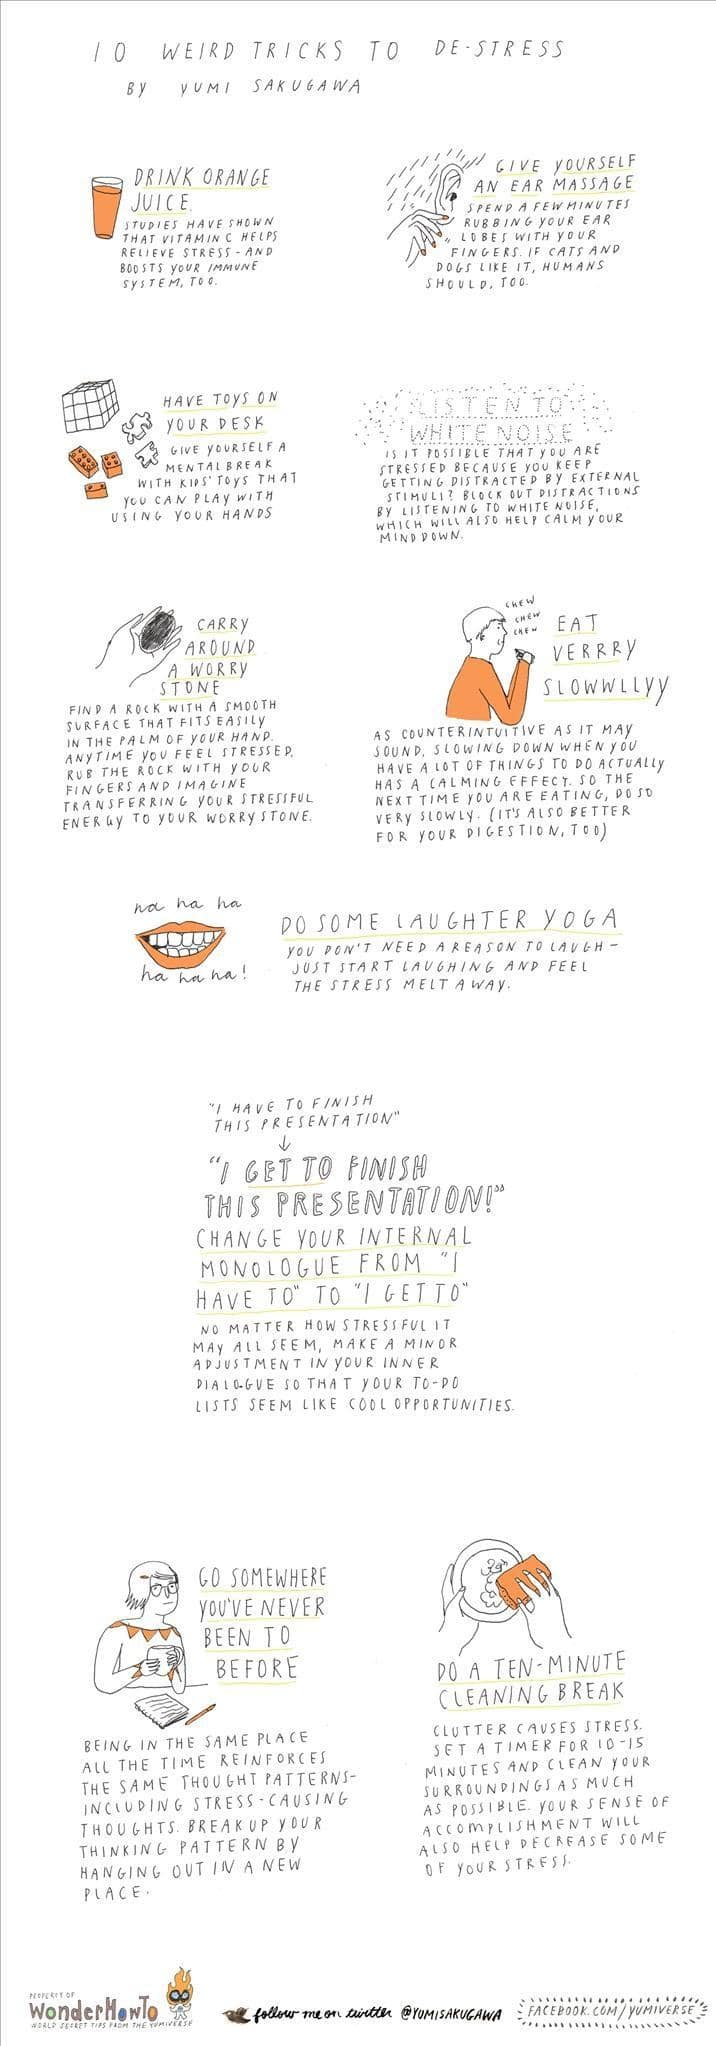 10 WEIRD TRICKS TO DE-STRESS
BY YUMI SAKUGAWA
DRINK ORANGE
JUICE.
STUDIES HAVE SHOWN
THAT VITAMIN C HELPS
RELIEVE STRESS - AND
BOOSTS YOUR IMMUNE
SYSTEM, TOO.
GIVE YOURSELF
AN EAR MASSAGE
SPEND A FEW MINUTES
RUBBING YOUR EAR
LOBES WITH YOUR
FINGERS. IF CATS AND
DOGS LIKE IT, HUMANS
SHOULD, TOO.
HAVE TOYS ON
YOUR DESK
GIVE YOURSELF A
MENTAL BREAK
WITH KIDS' TOYS THAT
YOU CAN PLAY WITH
USING YOUR HANDS
LISTEN TO
WHITE NOISE
IS IT POSSIBLE THAT YOU ARE
STRESSED BECAUSE YOU KEEP
GETTING DISTRACTED BY EXTERNAL
STIMULI? BLOCK OUT DISTRACTIONS
BY LISTENING TO WHITE NOISE,
WHICH WILL ALSO HELP CALM YOUR
MIND DOWN.
CARRY
AROUND
A WORRY
STONE
FIND A ROCK WITH A SMOOTH
SURFACE THAT FITS EASILY
IN THE PALM OF YOUR HAND.
ANYTIME YOU FEEL STRESSED,
RUB THE ROCK WITH YOUR
FINGERS AND IMAGINE
TRANSFERRING YOUR STRESSFUL
ENERGY TO YOUR WORRY STONE.
CHEW
CHEW
CHEW
EAT
VERRRY
SLOWWLLYY
AS COUNTERINTUITIVE AS IT MAY
SOUND, SLOWING DOWN WHEN YOU
HAVE A LOT OF THINGS TO DO ACTUALLY
HAS A CALMING EFFECT. SO THE
NEXT TIME YOU ARE EATING, DO SO
VERY SLOWLY. (IT'S ALSO BETTER
FOR YOUR DIGESTION, TOO)
ha ha ha
ha ha ha!
DO SOME LAUGHTER YOGA
YOU DON'T NEED A REASON TO LAUGH -
JUST START LAUGHING AND FEEL
THE STRESS MELT AWAY.
"I HAVE TO FINISH
THIS PRESENTATION"
↓
"I GET TO FINISH
THIS PRESENTATION!"
CHANGE YOUR INTERNAL
MONOLOGUE FROM "I
HAVE TO" TO "I GET TO"
NO MATTER HOW STRESSFUL IT
MAY ALL SEEM, MAKE A MINOR
ADJUSTMENT IN YOUR INNER
DIALOGUE SO THAT YOUR TO-DO
LISTS SEEM LIKE COOL OPPORTUNITIES.
GO SOMEWHERE
YOU'VE NEVER
BEEN TO
BEFORE
BEING IN THE SAME PLACE
ALL THE TIME REINFORCES
THE SAME THOUGHT PATTERNS-
INCLUDING STRESS-CAUSING
THOUGHTS. BREAK UP YOUR
THINKING PATTERN BY
HANGING OUT IN A NEW
PLACE.
DO A TEN-MINUTE
CLEANING BREAK
CLUTTER CAUSES STRESS.
SET A TIMER FOR 10-15
MINUTES AND CLEAN YOUR
SURROUNDINGS AS MUCH
AS POSSIBLE. YOUR SENSE OF
ACCOMPLISHMENT WILL
ALSO HELP DECREASE SOME
OF YOUR STRESS.
PROPERTY OF
WonderHowTo
WORLD SECRET TIPS FROM THE YUMIVERSE
follow me on twitter @YUMISAKUGAWA
FACEBOOK.COM/YUMIVERSE